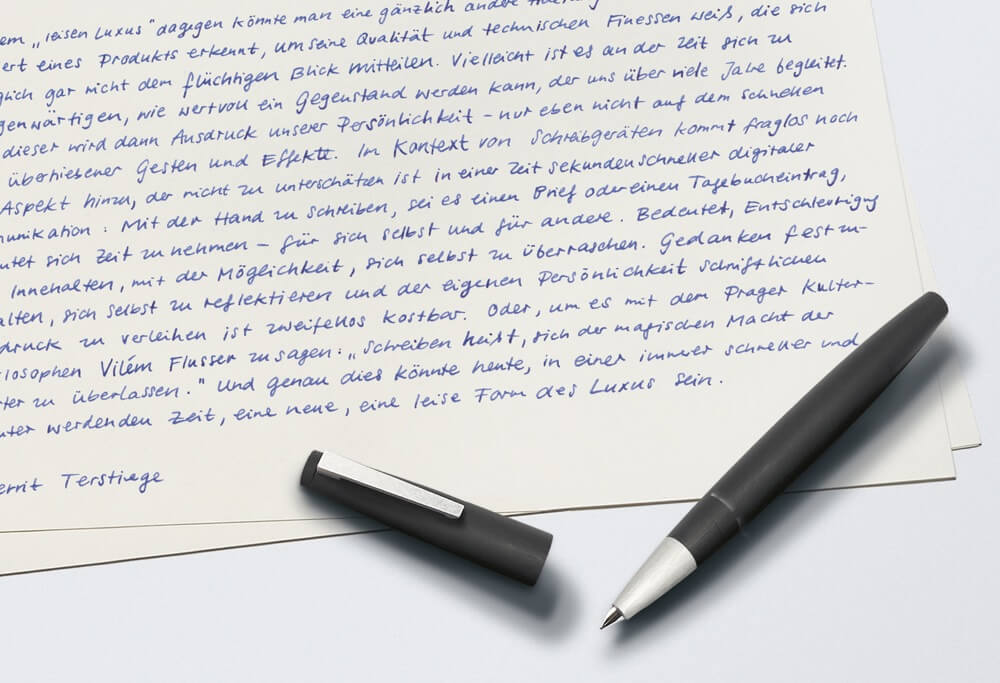 em „leisen Luxus" dagegen könnte man eine gänzlich andere
ert eines Produkts erkennt, um seine Qualität und technischen Finessen weiß, die sich
glich gar nicht dem flüchtigen Blick mitteilen. Vielleicht ist es an der Zeit sich zu
genwärtigen, wie wertvoll ein Gegenstand werden kann, der uns über viele Jahre begleitet.
dieser wird dann Ausdruck unserer Persönlichkeit – nur eben nicht auf dem schnellen
überhiebener Gesten und Effekte. Im Kontext von Schreibgeräten kommt fraglos noch
Aspekt hinzu, der nicht zu unterschätzen ist in einer Zeit sekundenschneller digitaler
munikation: Mit der Hand zu schreiben, sei es einen Brief oder einen Tagebucheintrag,
utet sich Zeit zu nehmen – für sich selbst und für andere. Bedeutet, Entschleunigung
Innehalten, mit der Möglichkeit, sich selbst zu überraschen. Gedanken festzu-
alten, sich selbst zu reflektieren und der eigenen Persönlichkeit schriftlichen
druck zu verleihen ist zweifellos kostbar. Oder, um es mit dem Prager Kultur-
losophen Vilém Flusser zu sagen: „Schreiben heißt, sich der magischen Macht der
rter zu überlassen." Und genau dies könnte heute, in einer immer schneller und
uter werdenden Zeit, eine neue, eine leise Form des Luxus sein.
errit Terstiege